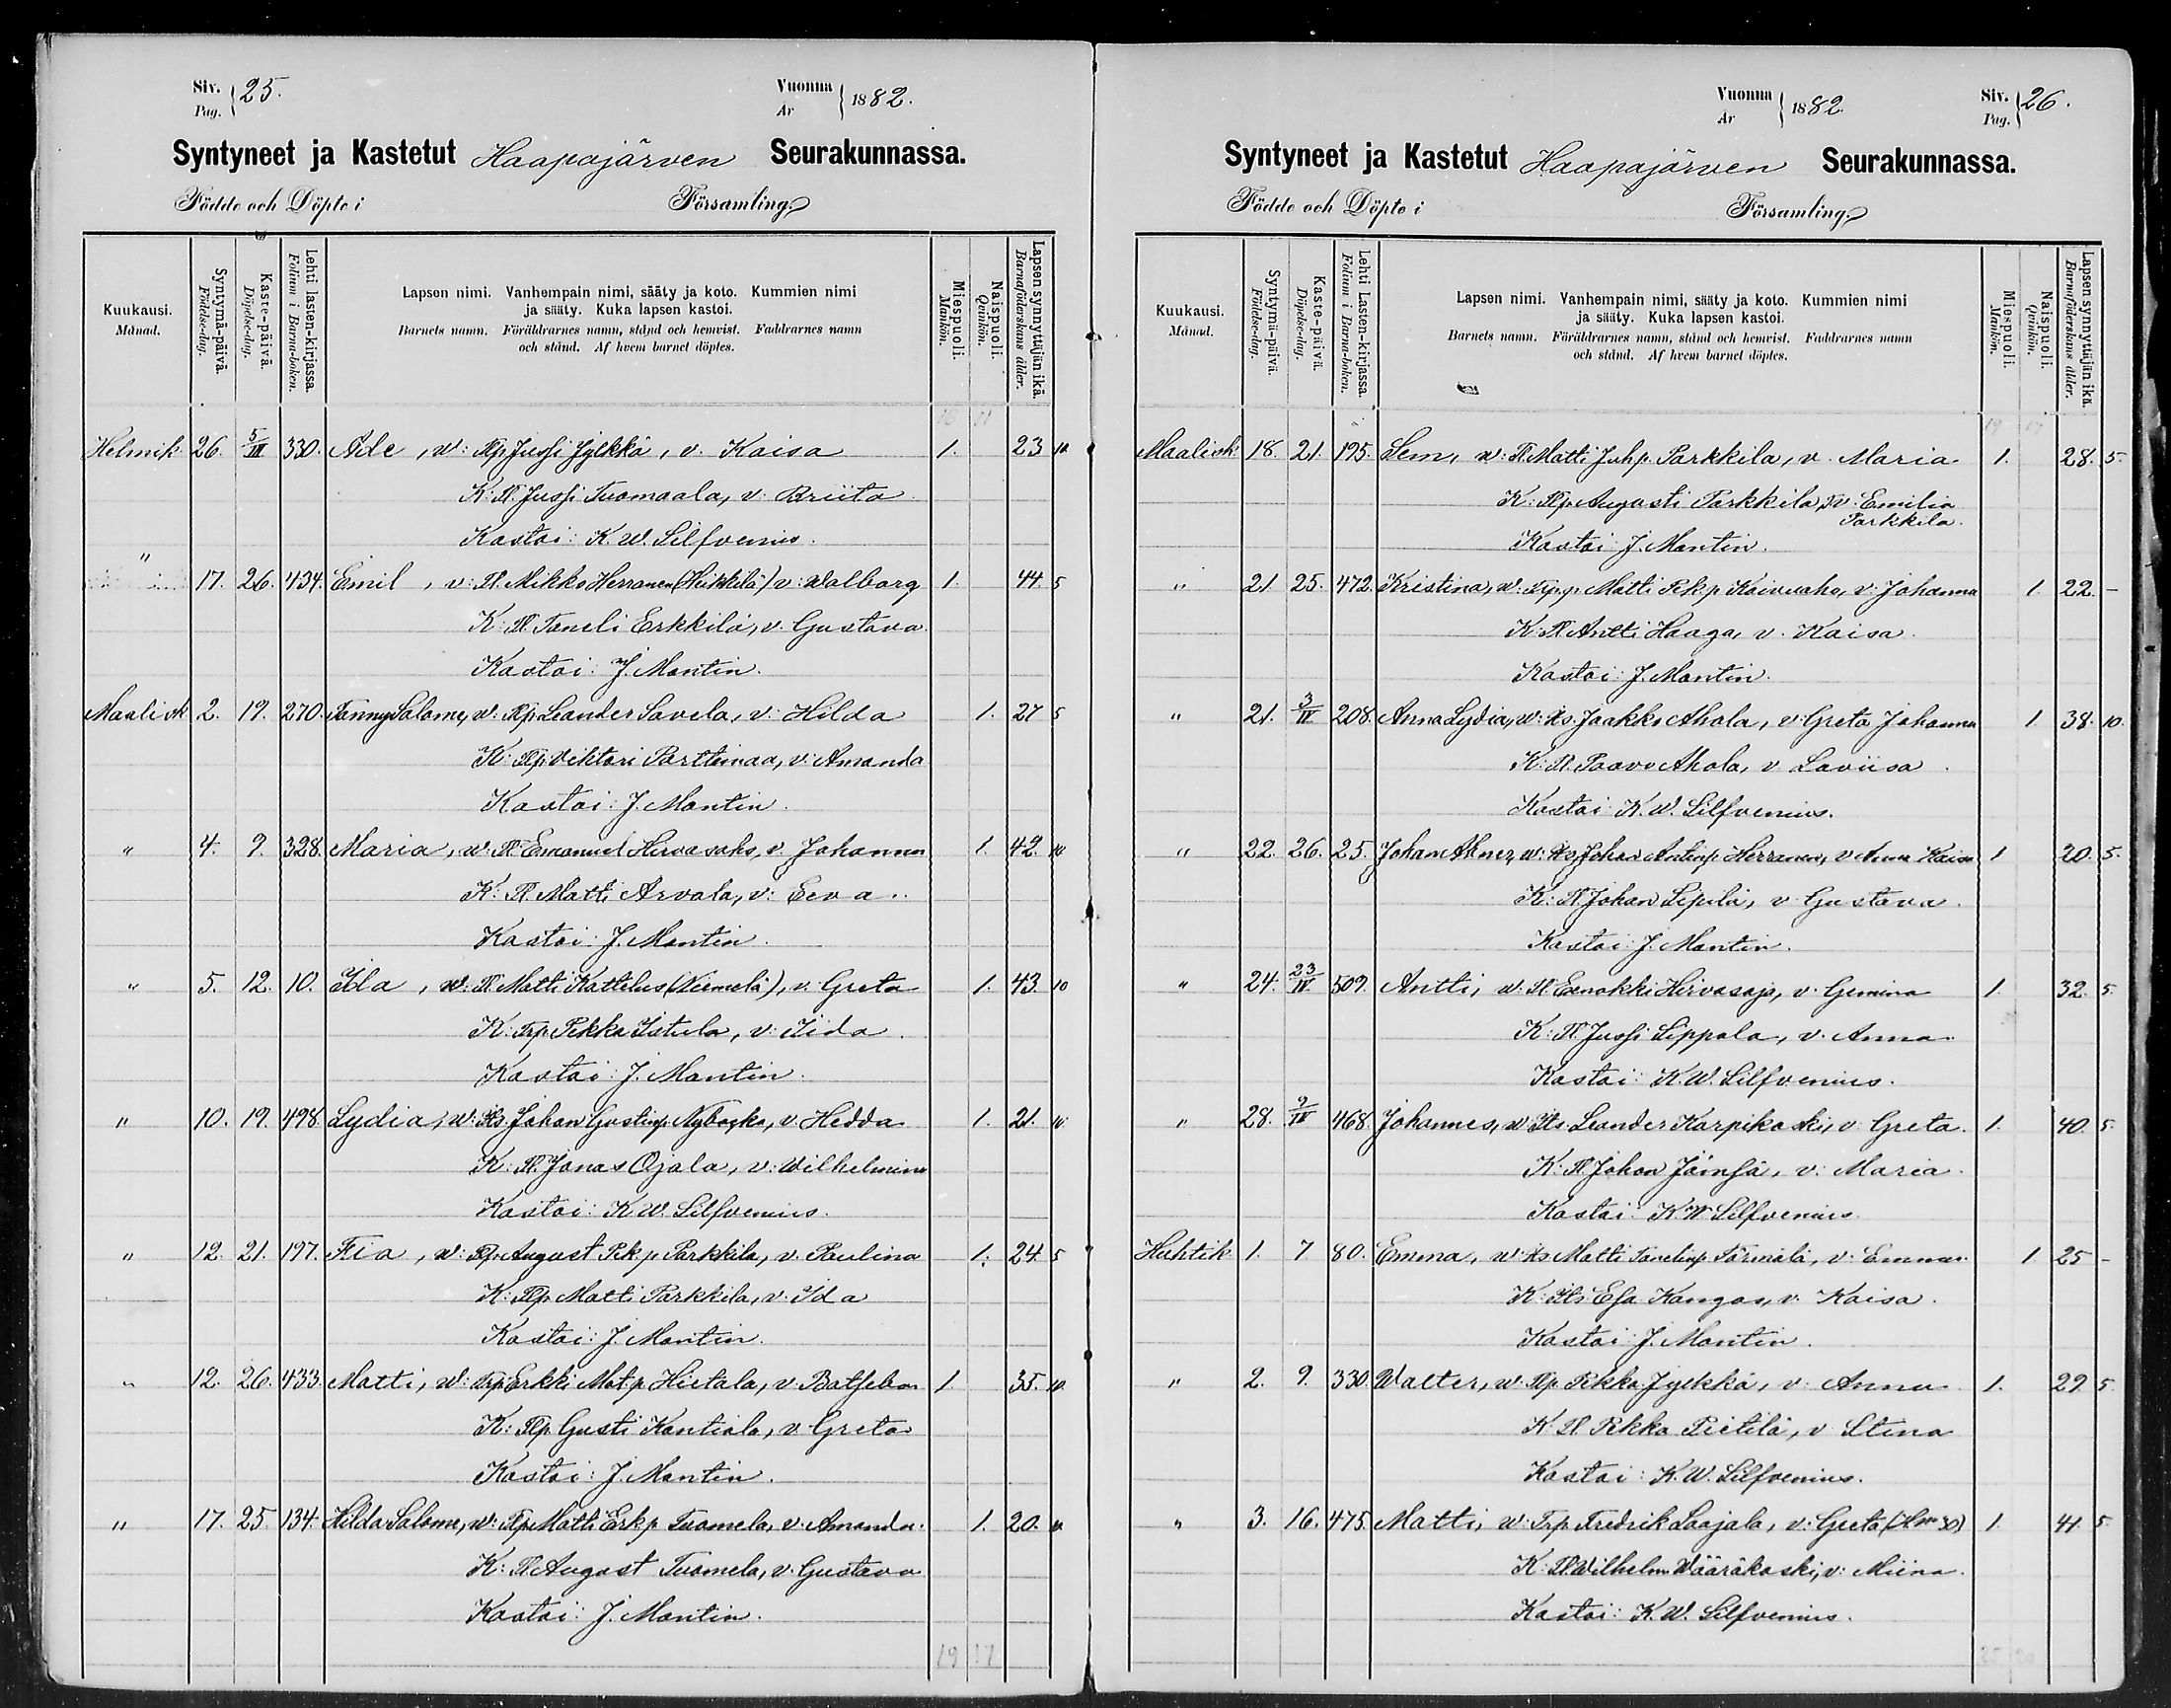 Siv. Pag. 25.
Vuonna År 1882.
Syntyneet ja Kastetut Haapajärven Seurakunnassa.
Födde och Döpte i Församling.
Kuukausi. Månad.
Syntymä-päivä. Födelse-dag.
Kaste-päivä. Döpelse-dag.
Lehti lasten-kirjassa. Folium i Barna-boken.
Lapsen nimi. Vanhempain nimi, sääty ja koto. Kummien nimi
ja sääty. Kuka lapsen kastoi.
Barnets namn. Föräldrarnes namn, stånd och hemvist. Faddrarnes namn
och stånd. Af hvem barnet döptes.
Miespuoli. Mankön.
Naispuoli. Qvinkön.
Lapsen synnyttäjän ikä. Barnaföderskans ålder.
Helmik. 26. 5/III 330. Ade, w: Tlp Jussi Jylkkä, v. Kaisa 1. 23 10
K: Tl. Jussi Tuomaala, v: Briita
Kastoi: K. W. Silfvenius.
" 17. 26. 434. Emil, v: Tl. Mikko Herranen (Heikkilä) v: Walborg 1. 44. 5
K: Tl Taneli Erkkilä, v. Gustava
Kastoi: J. Mantin.
Maalisk 2. 19. 270. Fanny Salome, w: Tlp Leander Savela, v: Hilda 1. 27 5
K: Tlp. Vihtori Parttimaa, v: Amanda
Kastoi: J. Mantin.
" 4. 9. 328. Maria, w: Tl. Emanuel Hirvasaho, v. Johanna 1. 42. 10
K: Tl. Matti Arvola, v: Eeva.
Kastoi: J. Mantin.
" 5. 12. 10. Ida, w: Tl. Matti Kattelus (Niemelä), v. Greta 1. 43. 10
K: Trp. Pekka Iistula, v: Iida.
Kastoi: J. Mantin.
" 10. 19. 498. Lydia, w: Its. Johan Gustinp. Nybacka, v: Hedda 1. 21. 10
K: Tl. Jonas Ojala, v: Wilhelmina
Kastoi: K. W. Silfvenius.
" 12. 21. 197. Fia, w: Tlp. August Pek p. Parkkila, v. Paulina 1. 24. 5
K: Tlp. Matti Parkkila, v. Ida
Kastoi: J. Mantin.
" 12. 26. 433. Matti, w: Trp Erkki Mat p. Hietala, v. Batseba 1. 35. 10.
K: Tlp. Gusti Kantiola, v. Greta
Kastoi: J. Mantin.
" 17. 25. 134. Hilda Salome, w: Tlp. Matti Erk p. Tuomela, v. Amanda. 1. 20.
K: Tl. August Tuomela, v. Gustava
Kastoi: J. Mantin.
19 17
Vuonna År 1882.
Siv. Pag. 26.
Syntyneet ja Kastetut Haapajärven Seurakunnassa.
Födde och Döpte i Församling.
Kuukausi. Månad.
Syntymä-päivä. Födelse-dag.
Kaste-päivä. Döpelse-dag.
Lehti Lasten-kirjassa. Folium i Barna-boken.
Lapsen nimi. Vanhempain nimi, sääty ja koto. Kummien nimi
ja sääty. Kuka lapsen kastoi.
Barnets namn. Föräldrarnes namn, stånd och hemvist. Faddrarnes namn
och stånd. Af hvem barnet döptes.
Miespuoli. Mankön.
Naispuoli. Qvinkön.
Lapsen synnyttäjän ikä. Barnaföderskans ålder.
19 17
Maalisk 18. 21. 195. Sem, w: Tl. Matti Juh p. Parkkila, v. Maria 1. 28. 5.
K: Tlp. Augusti Parkkila, v: Emilia
Parkkila.
Kastoi J. Mantin.
" 21 25. 472. Kristina, w: Matti Pek p. Koivuaho, v: Johanna 1 22. -
K: Tl Antti Haaga, v. Kaisa.
Kastoi: J. Mantin.
" 21. 3/IV 208. Anna Lydia, w: Its. Jaakko Ahola, v: Greta Johanna 1 38. 10.
K: Tl. Paavo Ahola, v Laviisa.
Kastoi K. W. Silfvenius.
" 22. 26. 25. Johan Abner, w: Its Johan Antinp. Herranen, v Anna Kaisa 1 20. 5.
K: Tl Johan Sipilä, v Gustava.
Kastoi J. Mantin.
" 24. 23/IV 509. Antti, w: Tl Eenokki Hirvasoja, v. Gemina 1. 32. 5.
K: Tl Jussi Sippola, v. Anna.
Kastoi: K. W. Silfvenius.
" 28. 9/IV 468 Johannes, w: Its Leander Karpikoski, v. Greta. 1. 40. 5.
K: Tl Johan Jämsä, v: Maria.
Kastoi: K W Silfvenius.
Huhtik 1. 7 80. Emma, w: Its Matti Tanelinp. Törmälä, v: Emma. 1 25 -
K: Its. Esa Kangas, v: Kaisa.
Kastoi: J. Mantin.
" 2. 9. 330. Walter, w: Tlp. Pekka Jylkkä, v. Anna 1. 29. 5
K: Tl Pekka Pietilä, v Stina
Kastoi: K. W. Silfvenius.
" 3. 16. 475. Matti, w: Trp. Fredrik Laajala, v: Greta 1. 41. 5.
K: Tl Wilhelm Wääräkoski, v: Miina.
Kastoi: K. W. Silfvenius.